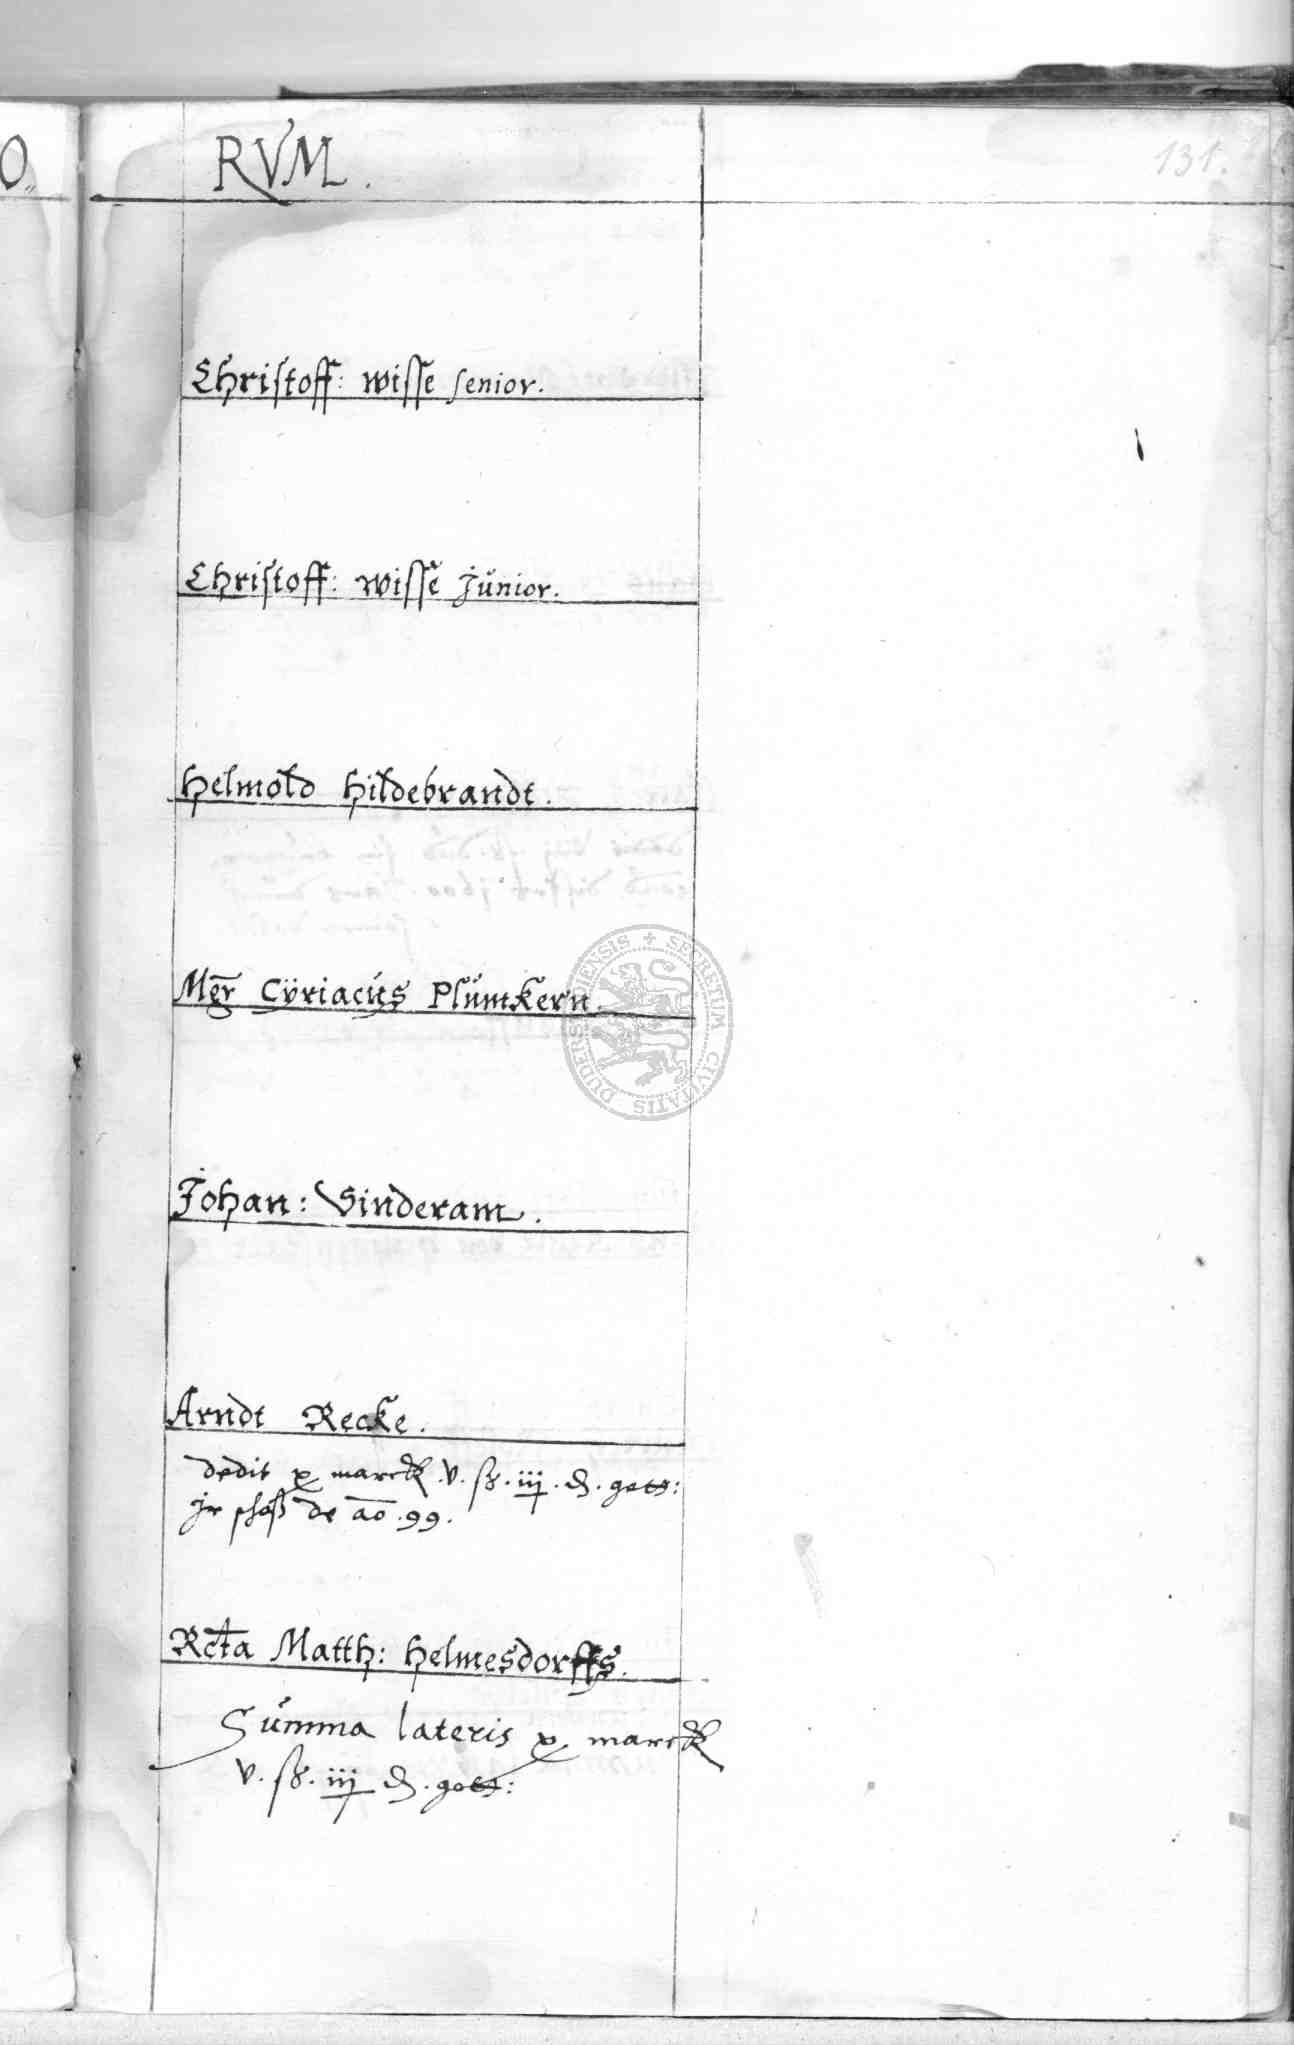 O
RVM.
131.
Christoff: wisse senior.
Christoff: wisse Jŭnior.
Helmold Hildebrandt.
Mgr̄ Cÿriacŭs Plŭmkern.
Johan: Vinderam.
Arndt Recke.
dedit x marck .v. ß. iij. ₰. gott:
Jr schoß de ao .99.
Rcta Matth: Helmesdorffs.
Sŭmma lateris x marck
v. ß. iij ₰. gott:
DUDERSTADIENSIS + SECRETUM CIVITATIS